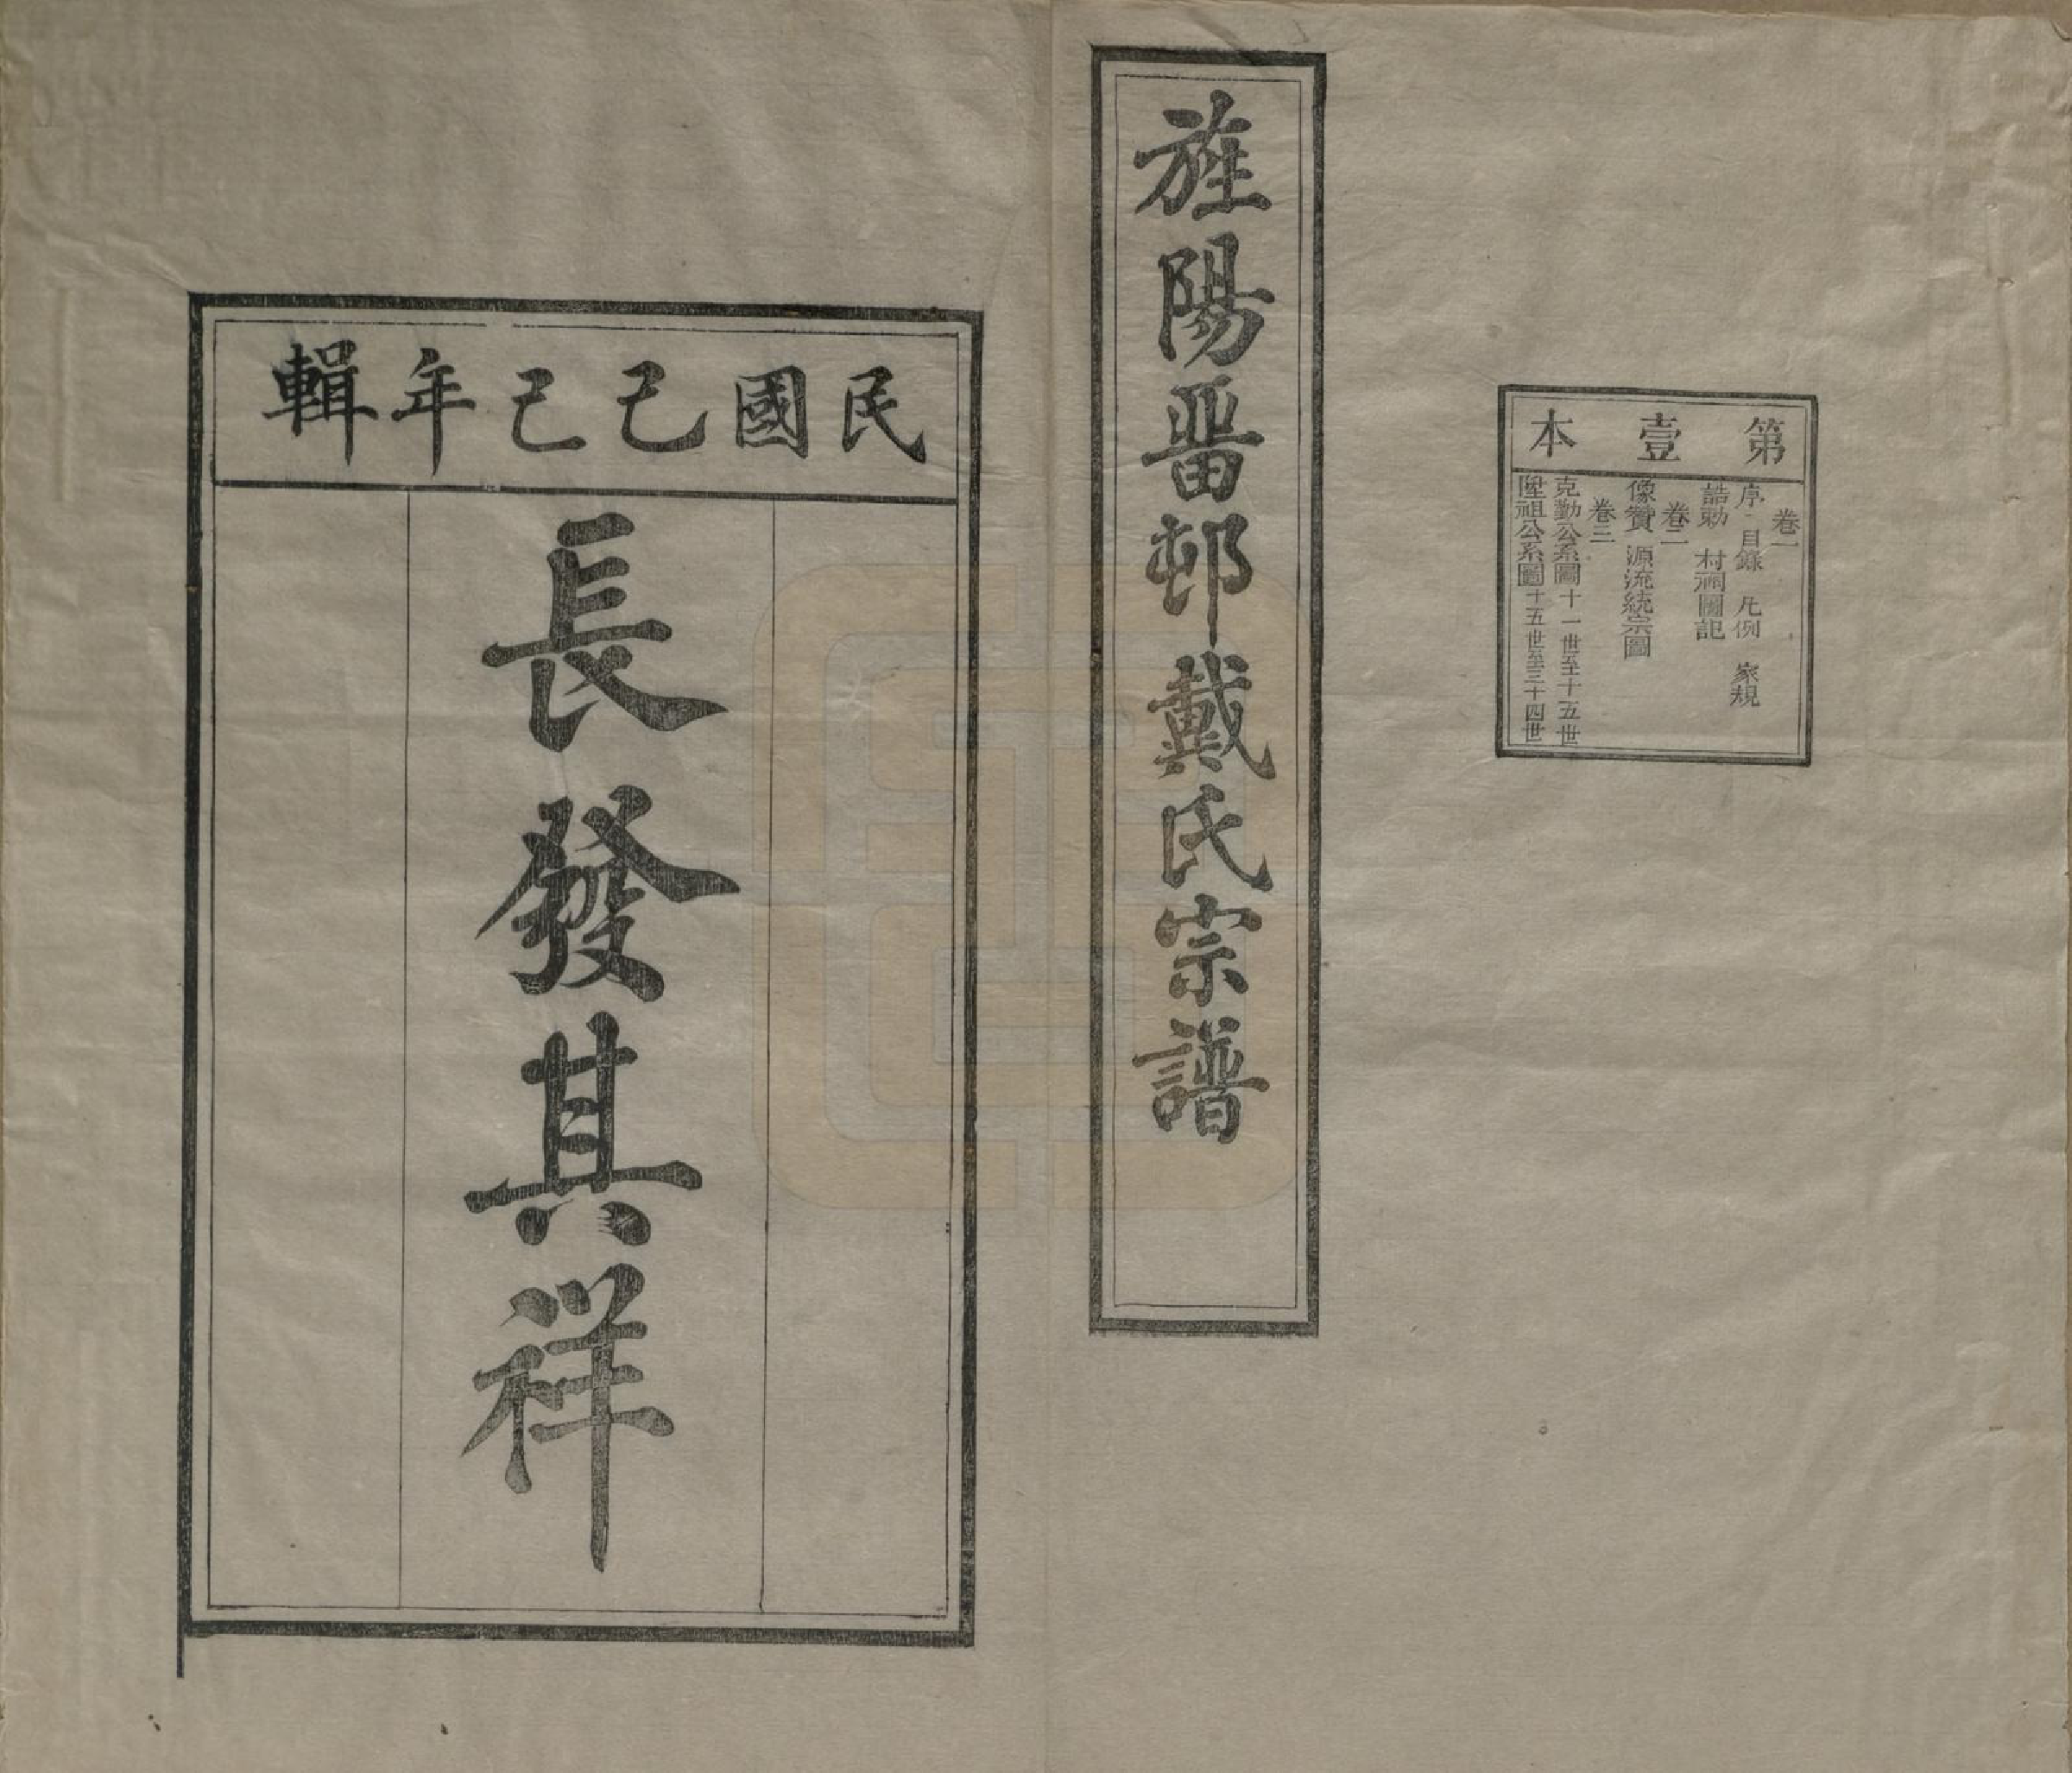 第壹本
卷一
序　目錄　凡例　家規
誥勅　村祠圖記
卷二
像贊　源流統宗圖
卷三
克勤公系圖十一世至十五世
陞祖公系圖十五世至三十四世
旌陽畨邨戴氏宗譜
民國己巳年輯
長發其祥